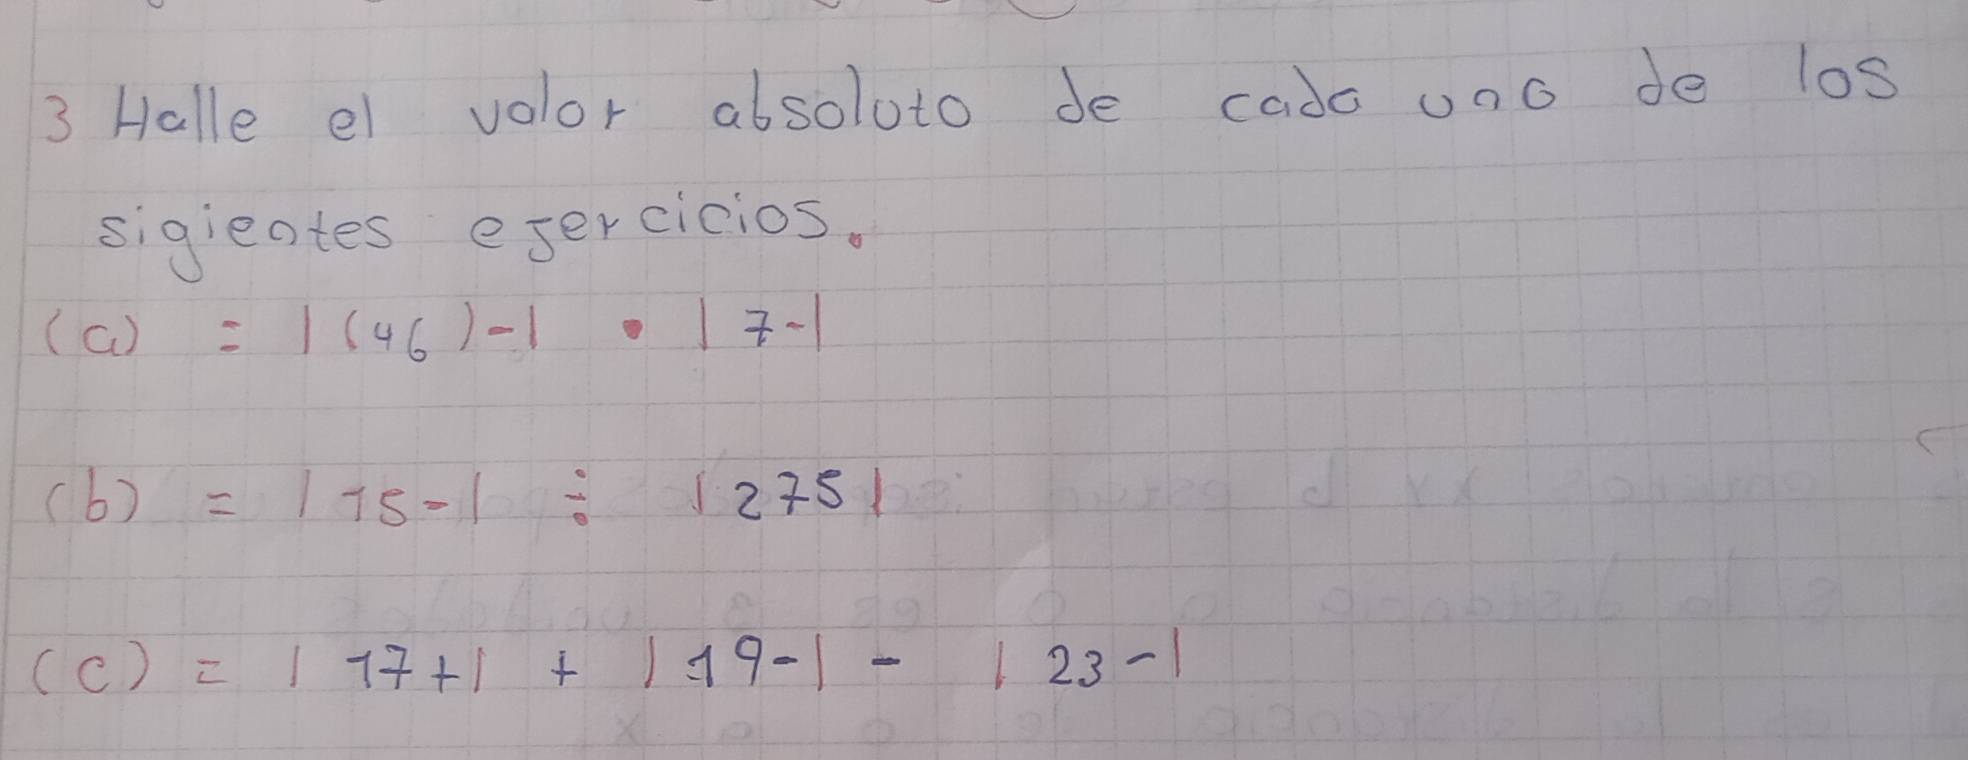 3 Halle el valor absoluto de cada uno de los
sigientes ejercicios.
(a) = |(46)-| • |7-|
(b) = |15-| ÷ |275|
(c) = |17+| + |19-| - |23-|